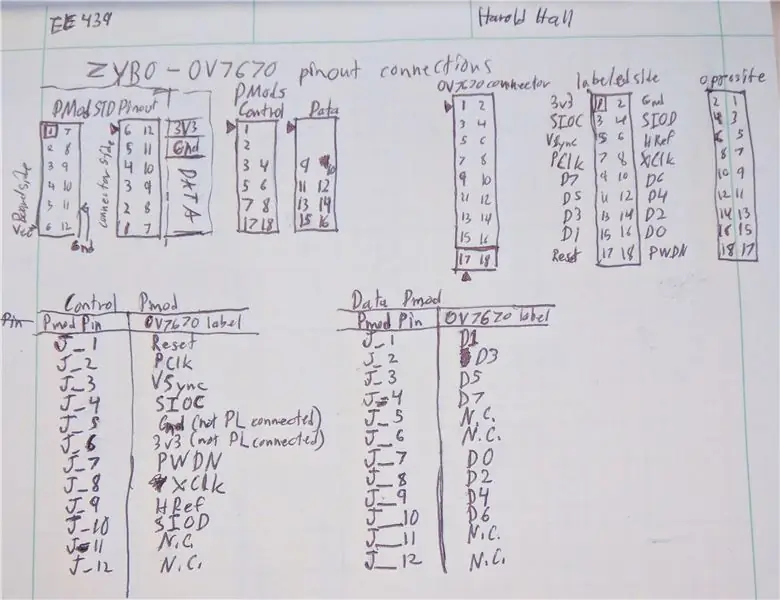 EE 439
Harold Hall
ZYBO - OV7670 pinout connections
PMod STD Pinout
PMods
Control Data
OV7670 connector
labeled side
opposite
Board side
connector side
Vcc
Gnd
1 7
2 8
3 9
4 10
5 11
6 12
6 12 3V3
5 11 Gnd
4 10 DATA
3 9
2 8
1 7
1
2
3 4
5 6
7 8
17 18
9 10
11 12
13 14
15 16
1 2
3 4
5 6
7 8
9 10
11 12
13 14
15 16
17 18
3v3 1 2 Gnd
SIOC 3 4 SIOD
VSync 5 6 HRef
PClk 7 8 XClk
D7 9 10 D6
D5 11 12 D4
D3 13 14 D2
D1 15 16 D0
Reset 17 18 PWDN
2 1
4 3
6 5
8 7
10 9
12 11
14 13
16 15
18 17
Control Pmod
Pin Pmod Pin OV7670 label
J_1 Reset
J_2 PClk
J_3 VSync
J_4 SIOC
J_5 Gnd (not PL connected)
J_6 3V3 (not PL connected)
J_7 PWDN
J_8 XClk
J_9 HRef
J_10 SIOD
J_11 N.C.
J_12 N.C.
Data Pmod
Pmod Pin OV7670 label
J_1 D1
J_2 D3
J_3 D5
J_4 D7
J_5 N.C.
J_6 N.C.
J_7 D0
J_8 D2
J_9 D4
J_10 D6
J_11 N.C.
J_12 N.C.